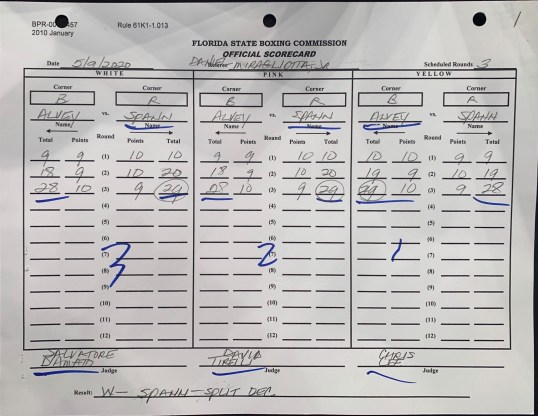 BPR-00 457 Rule 61K1-1.013
2010 January
1
FLORIDA STATE BOXING COMMISSION
OFFICIAL SCORECARD
Date 5/9/2020 Referee DANIEL MIRAGLIOTTA, JR Scheduled Rounds 3
WHITE PINK YELLOW
Corner Corner Corner Corner Corner Corner
B R B R B R
ALVEY vs. SPANN ALVEY vs. SPANN ALVEY vs. SPANN
Name Name Name Name Name Name
Total Points Round Points Total Total Points Round Points Total Total Points Round Points Total
9 9 (1) 10 10 9 9 (1) 10 10 10 10 (1) 9 9
18 9 (2) 10 20 18 9 (2) 10 20 19 9 (2) 10 19
28 10 (3) 9 29 28 10 (3) 9 29 29 10 (3) 9 28
(4) (4) (4)
(5) (5) (5)
(6) (6) (6)
(7) (7) (7)
(8) (8) (8)
(9) (9) (9)
3 2 1
(10) (10) (10)
(11) (11) (11)
(12) (12) (12)
SALVATORE DAVID CHRIS
D'AMATO TIRELLI LEE
Judge Judge Judge
Result: W- SPANN-SPLIT DEC.